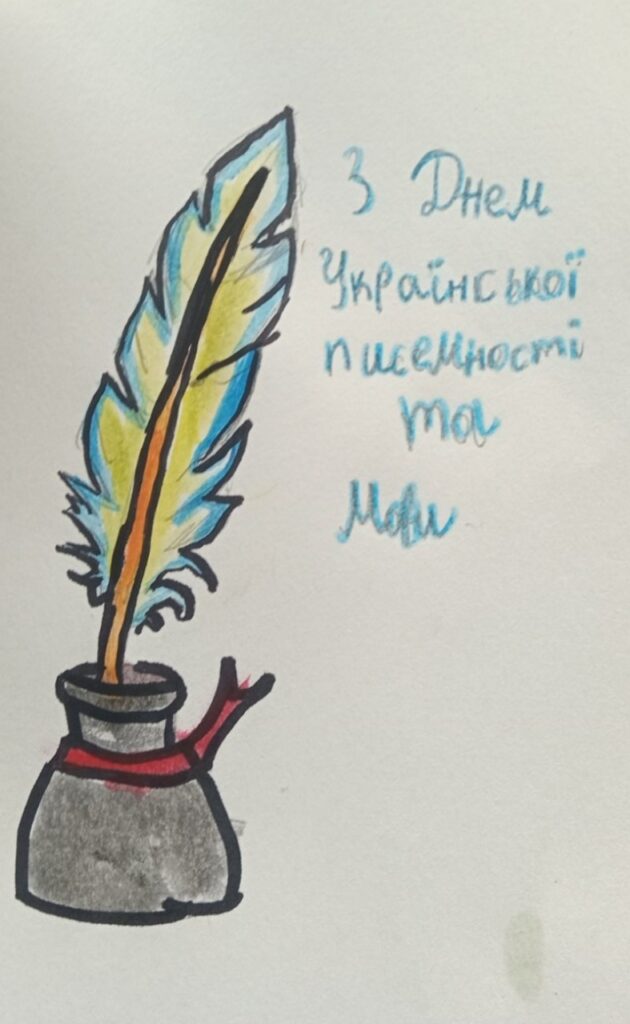 З Днем
Української
писемності
та
Мови